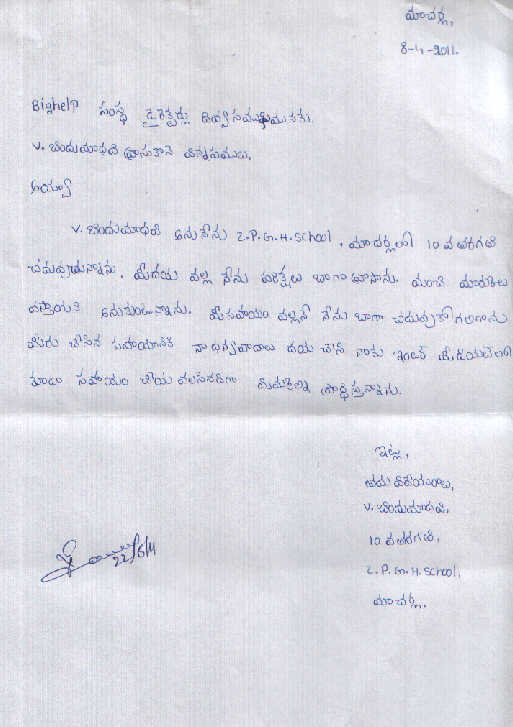 మాచర్ల,
8-4-2011.
Bighelp సంస్థ డైరెక్టర్లు దివ్య సముఖమునకు.
V. బిందుమాధవి వ్రాసుకొనే విన్నపములు,
అయ్యా
V. బిందుమాధవి అను నేను Z.P.G.H.School, మాచర్లలో 10 వ తరగతి
చదువుచున్నాను. మీదయ వల్ల నేను పరీక్షలు బాగా వ్రాసాను. మంచి మార్కులు
వస్తాయని అనుకుంటున్నాను. మీ సహాయం వల్లనే నేను బాగా చదువుకో గలిగాను
మీరు చేసిన సహాయానికి నా ధన్యవాదాలు దయ చేసి నాకు ఇంటర్ మీడియట్‌లో
కూడా సహాయం చేయ వలసినదిగా మిమ్మల్ని ప్రార్థిస్తున్నాను.
ఇట్లు,
తమ విధేయురాలు,
V. బిందుమాధవి,
10 వ తరగతి,
Z.P.G.H.School,
మాచర్ల.
22/5/11